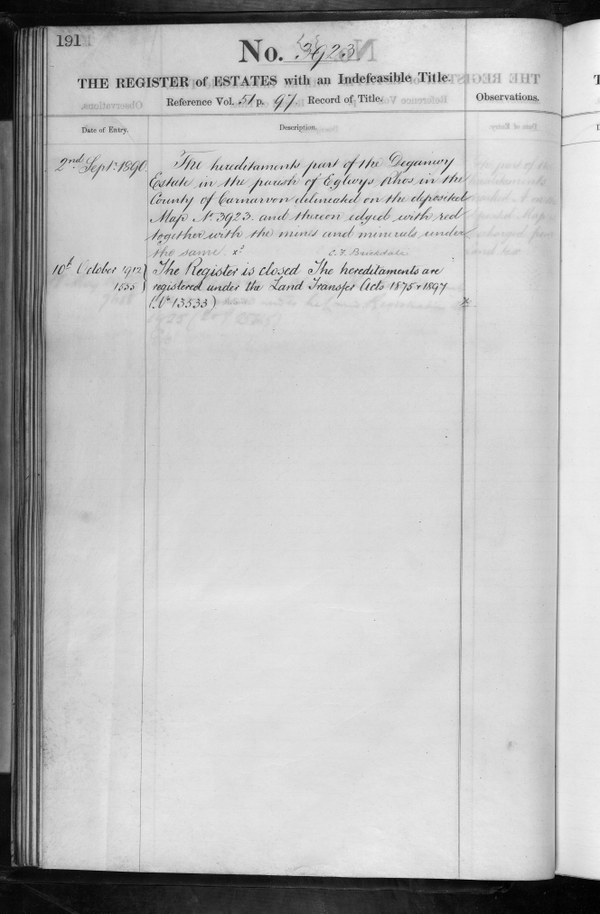 191
No. 3923
THE REGISTER of ESTATES with an Indefeasible Title.
Reference Vol. 51 p. 97. Record of Title.
Observations.
Date of Entry.
Description.
2nd Septr. 1890
The hereditaments part of the Deganwy
Estate in the parish of Eglwys Rhos in the
County of Carnarvon delineated on the deposited
Map No. 3923 and thereon edged with red
together with the mines and minerals under
the same. xd
C. F. Brickdale
10th October 1912
1535
The Register is closed The hereditaments are
registered under the Land Transfer Acts 1875 & 1897
(No 13533)
x